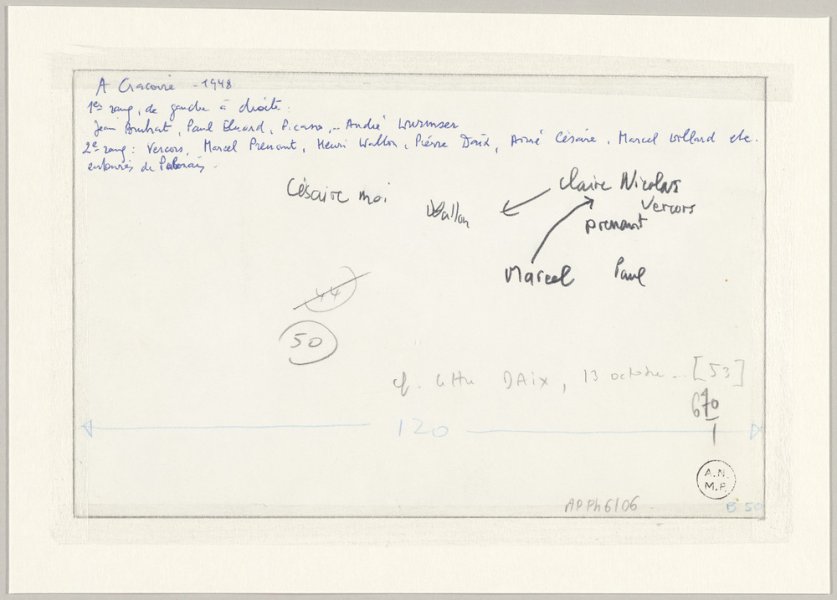 A Cracovie - 1948.
1er rang, de gauche à droite.
Jean Bouhat, Paul Eluard, Picasso, - André Wurmser
2e rang : Vercors, Marcel Prenant, Henri Wallon, Pierre Daix, Aimé Césaire, Marcel Willard etc.
entourés de Polonais.
Césaire moi
Wallon
Claire Nicolas
Vercors
prenant
Marcel Paul
44
50
cf. lettre DAIX, 13 octobre [53]
670
1
120
A.N.
M.P.
APPH6106
B 50